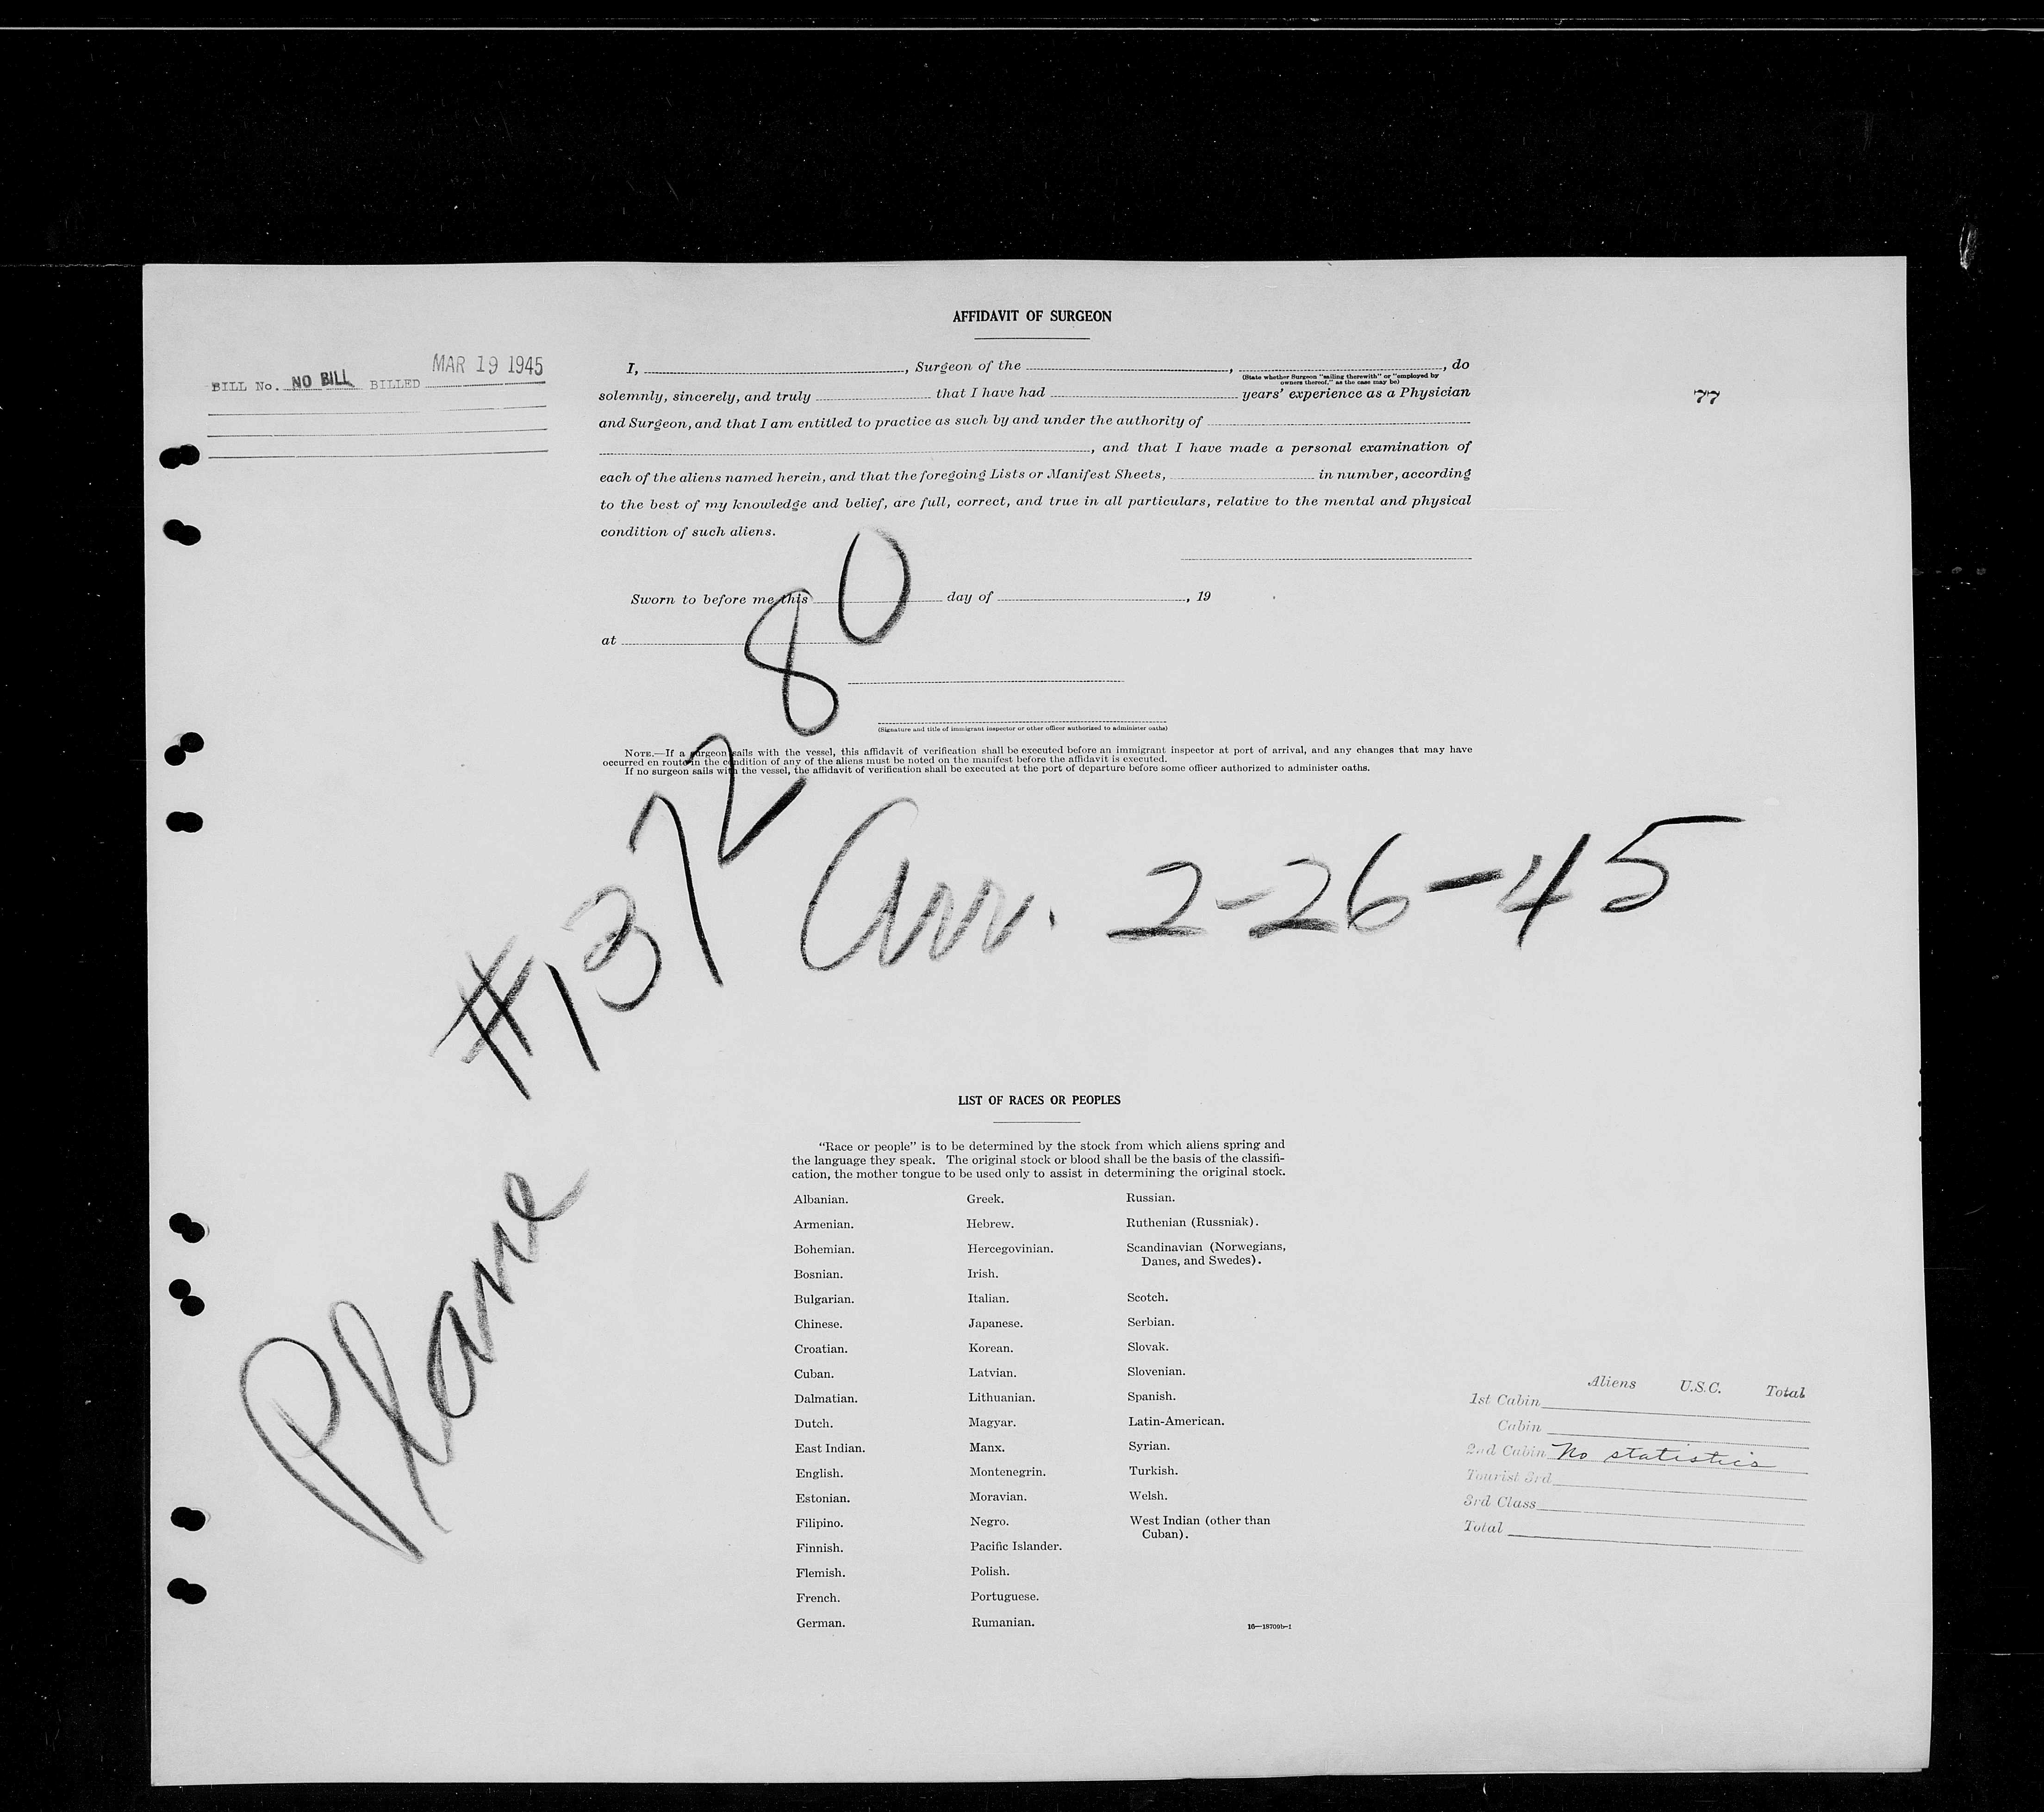 AFFIDAVIT OF SURGEON
BILL No. NO BILL BILLED MAR 19 1945
77
I, , Surgeon of the , , do
(State whether Surgeon "sailing therewith" or "employed by
owners thereof," as the case may be)
solemnly, sincerely, and truly that I have had years' experience as a Physician
and Surgeon, and that I am entitled to practice as such by and under the authority of
, and that I have made a personal examination of
each of the aliens named herein, and that the foregoing Lists or Manifest Sheets, in number, according
to the best of my knowledge and belief, are full, correct, and true in all particulars, relative to the mental and physical
condition of such aliens.
Sworn to before me this day of , 19
at
(Signature and title of immigrant inspector or other officer authorized to administer oaths)
NOTE.—If a surgeon sails with the vessel, this affidavit of verification shall be executed before an immigrant inspector at port of arrival, and any changes that may have
occurred en route in the condition of any of the aliens must be noted on the manifest before the affidavit is executed.
If no surgeon sails with the vessel, the affidavit of verification shall be executed at the port of departure before some officer authorized to administer oaths.
Plane #137280
Arr. 2-26-45
LIST OF RACES OR PEOPLES
"Race or people" is to be determined by the stock from which aliens spring and
the language they speak. The original stock or blood shall be the basis of the classifi-
cation, the mother tongue to be used only to assist in determining the original stock.
Albanian.
Armenian.
Bohemian.
Bosnian.
Bulgarian.
Chinese.
Croatian.
Cuban.
Dalmatian.
Dutch.
East Indian.
English.
Estonian.
Filipino.
Finnish.
Flemish.
French.
German.
Greek.
Hebrew.
Hercegovinian.
Irish.
Italian.
Japanese.
Korean.
Latvian.
Lithuanian.
Magyar.
Manx.
Montenegrin.
Moravian.
Negro.
Pacific Islander.
Polish.
Portuguese.
Rumanian.
Russian.
Ruthenian (Russniak).
Scandinavian (Norwegians,
Danes, and Swedes).
Scotch.
Serbian.
Slovak.
Slovenian.
Spanish.
Latin-American.
Syrian.
Turkish.
Welsh.
West Indian (other than
Cuban).
16—18709b-1
Aliens U.S.C. Total
1st Cabin
Cabin
2nd Cabin No statistics
Tourist 3rd
3rd Class
Total